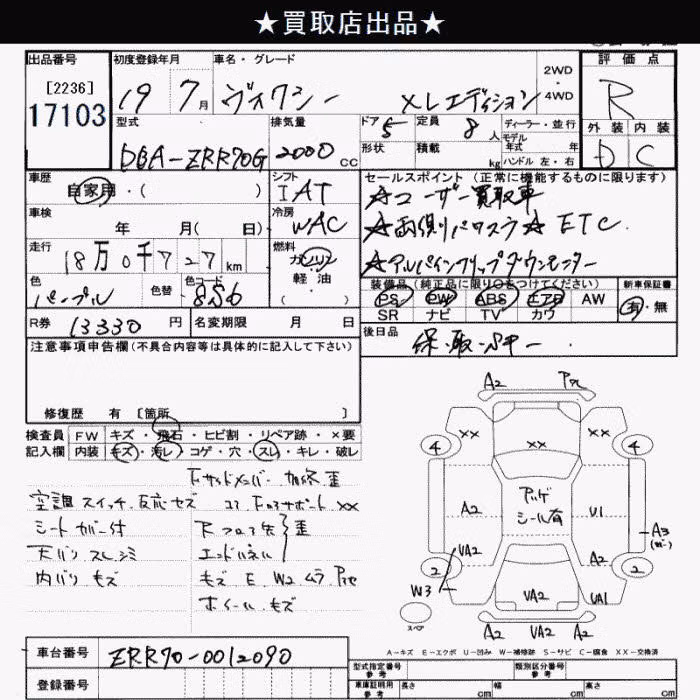 ★買取店出品★
出品番号 初度登録年月 車名・グレード 評価点
[2236]
17103
19 7月 ヴォクシー XLエディション 2WD・4WD R
型式 排気量 ドア 定員 ディーラー・並行 外装 内装
DBA-ZRR70G 2000cc 5 8人 モデル年式 年 D C
形状 積載 kg ハンドル 左・右
車歴 シフト セールスポイント(正常に機能するものに限ります)
自家用・( ) IAT ☆ユーザー買取車
車検 冷房
年 月(日) WAC ☆両側パワスラ☆ETC
走行 燃料
18万0千727km ガソリン・軽油 ☆アルパインフリップダウンモニター
色 色替 色コード 装備品(純正品に限り○をつけてください) 新車保証書
パープル 856 PS PW ABS エアB AW 有・無
SR ナビ TV カワ
R券 13330円 名変期限 月 日 後日品
保・取・
注意事項申告欄(不具合内容等は具体的に記入して下さい)
修復歴 有 [箇所 ]
検査員 FW キズ・飛石・ヒビ割・リペア跡・×要
記入欄 内装 キズ・汚レ・コゲ・穴・スレ・キレ・破レ
下サイドメンバー 歪
空調スイッチ反応セズ コアサポート XX
シートカバー付 Rフロア 歪
天バリ スレ シミ エンドパネル
内バリ キズ キズ E W2 ムラ
ホイールキズ
A2
XX XX XX
4 4
A2 シール有 U1
VA2 A2 A3
2 2
W3 VA2 UA1
スペア
A2 VA2 A2
A-キズ E-エクボ U-凹み W-補修跡 S-サビ C-腐食 XX-交換済
車台番号 ZRR70-0012090
登録番号
型式指定番号 参考 類別区分番号 参考
車庫証明用 参考 長さ cm 幅 cm 高さ cm